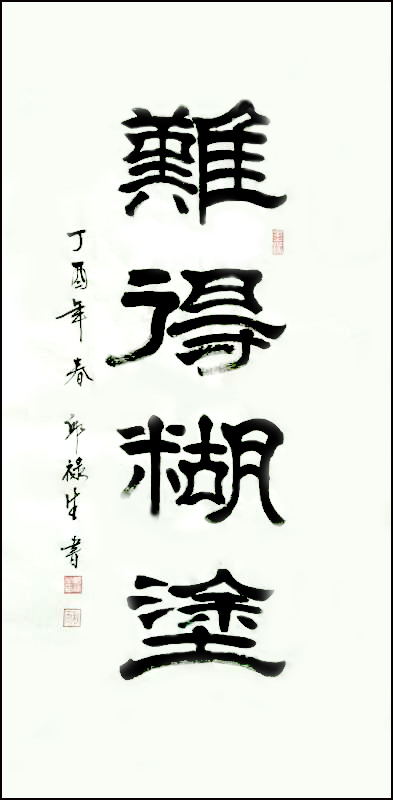 難得糊塗
丁酉年春 邱禄生書